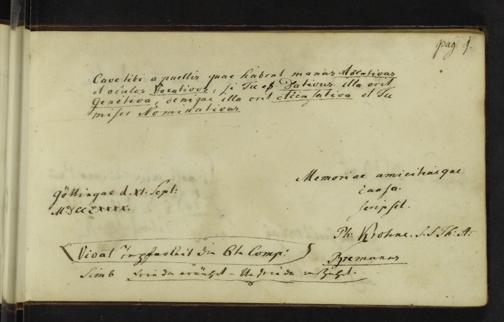 pag 9.
Cave tibi a puellis quae habent manus Ablativas
et oculos Vocativos, si Tu es Dativus illa erit
Genetiva, denique illa erit Accusativa et Tu
miser Nominativus
Göttingae d. XI. Sept:
MDCCLXXXX.
Memoriae amicitiaeque
causa
scripsit
Ph. Krohne. S. S. Th. A.
Bremanus
Vivat die 6te Comp:
Simb